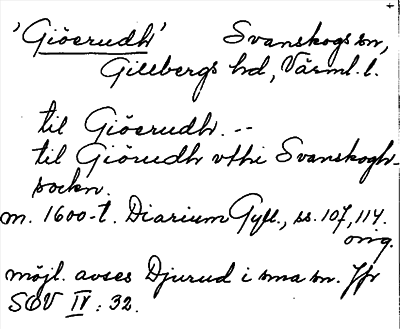 'Giöerudh' Svanskogs sn,
Gillbergs hd, Värml. l.
til Giöerudh. --
til Giörudh vthi Svanskogh-
sockn.
m. 1600-t. Diarium Gyll., ss. 107, 114.
orig.
möjl. avses Djurud i sma sn. Jfr
SOV IV : 32.